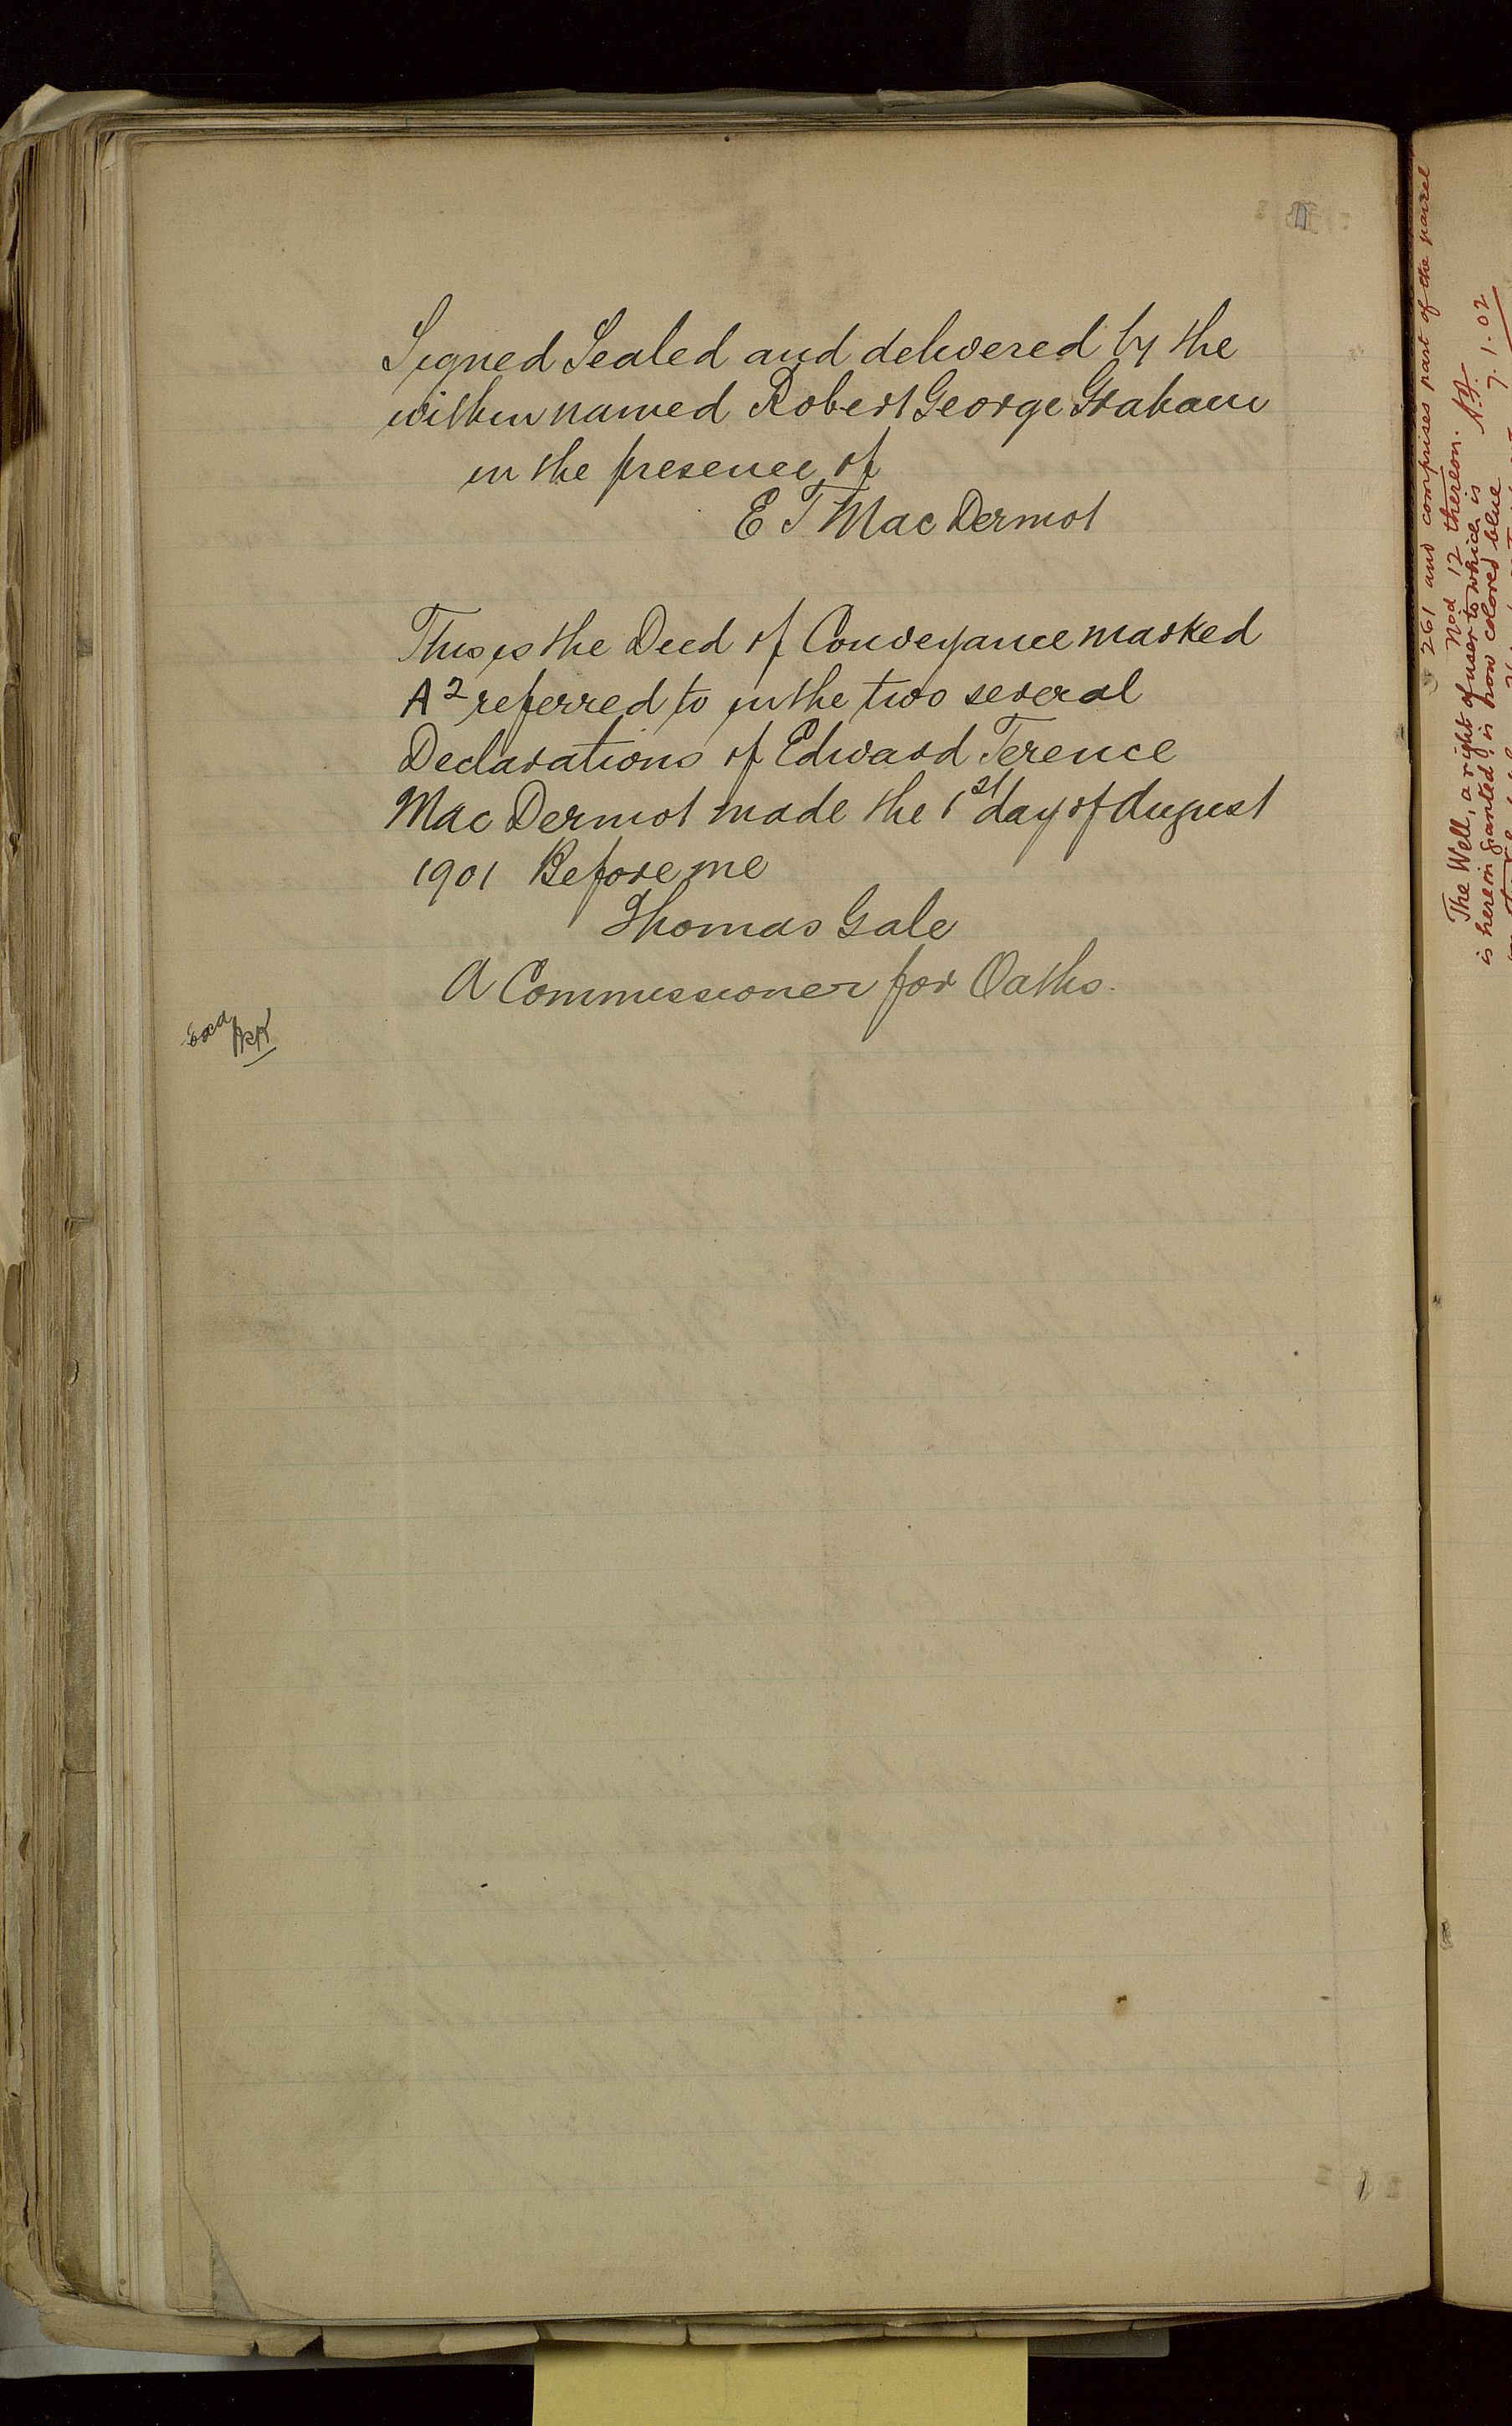 Signed Sealed and delivered by the
within named Robert George Graham
in the presence of
E T Mac Dermot
This is the Deed of Conveyance marked
A2 referred to in the two several
Declarations of Edward Terence
Mac Dermot made the 1st day of August
1901 Before me
Thomas Gale
A Commissioner for Oaths.
Exd
261 and comprises part of the parcel
No'd 12 thereon.
The Well, a right of user to which is
is herein granted, is now colored blue
7.1.02